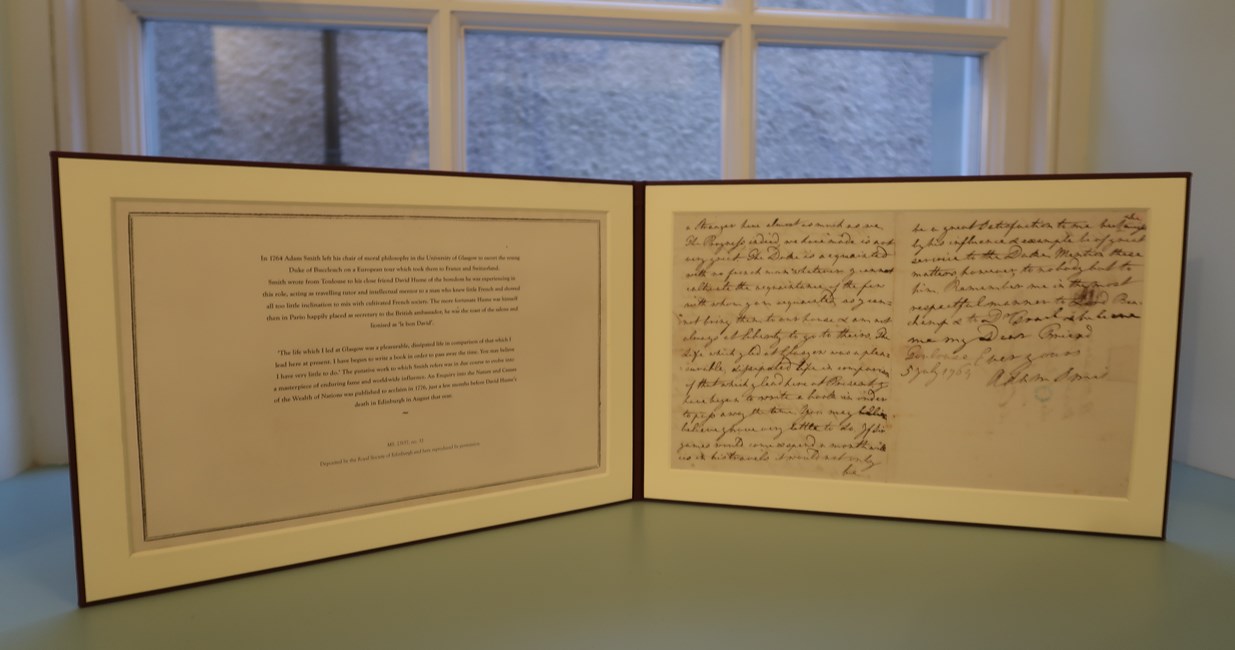 In 1764 Adam Smith left his chair of moral philosophy in the University of Glasgow to escort the young
Duke of Buccleuch on a European tour which took them to France and Switzerland.
Smith wrote from Toulouse to his close friend David Hume of the boredom he was experiencing in
this role, acting as travelling tutor and intellectual mentor to a man who knew little French and showed
all too little inclination to mix with cultivated French society. The more fortunate Hume was himself
then in Paris happily placed as secretary to the British ambassador, he was the toast of the salons and
lionised as 'le bon David'.
'The life which I led at Glasgow was a pleasurable, dissipated life in comparison of that which I
lead here at present. I have begun to write a book in order to pass away the time. You may believe
I have very little to do.' The putative work to which Smith refers was in due course to evolve into
a masterpiece of enduring fame and worldwide influence. An Enquiry into the Nature and Causes
of the Wealth of Nations was published to acclaim in 1776, just a few months before David Hume's
death in Edinburgh in August that year.
Deposited by the Royal Society of Edinburgh and here reproduced by permission.
a Stranger here almost as much as we
The Progress indeed we have made is not
very great. The Duke is acquainted
with no french man whatever I cannot
cultivate the acquaintance of the few
with whom I am acquainted, as I can
not bring them to our house & am not
always at liberty to go to theirs. The
Life which I led at Glasgow was a pleas
urable, dissipated life in comparison
of that which I lead here at Present. I
have begun to write a book in order
to pass away the time. You may believe
I have very little to do. If Sir
James would come & spend a month with
us in his travels it would not only
be
be a great Satisfaction to me but
by his influence & example be of great
service to the Duke. Mention these
matters, however, to nobody but to
him. Remember me in the most
respectful manner to
me my Dear Friend
Toulouse Ever yours
5 July 1764 Adam Smith